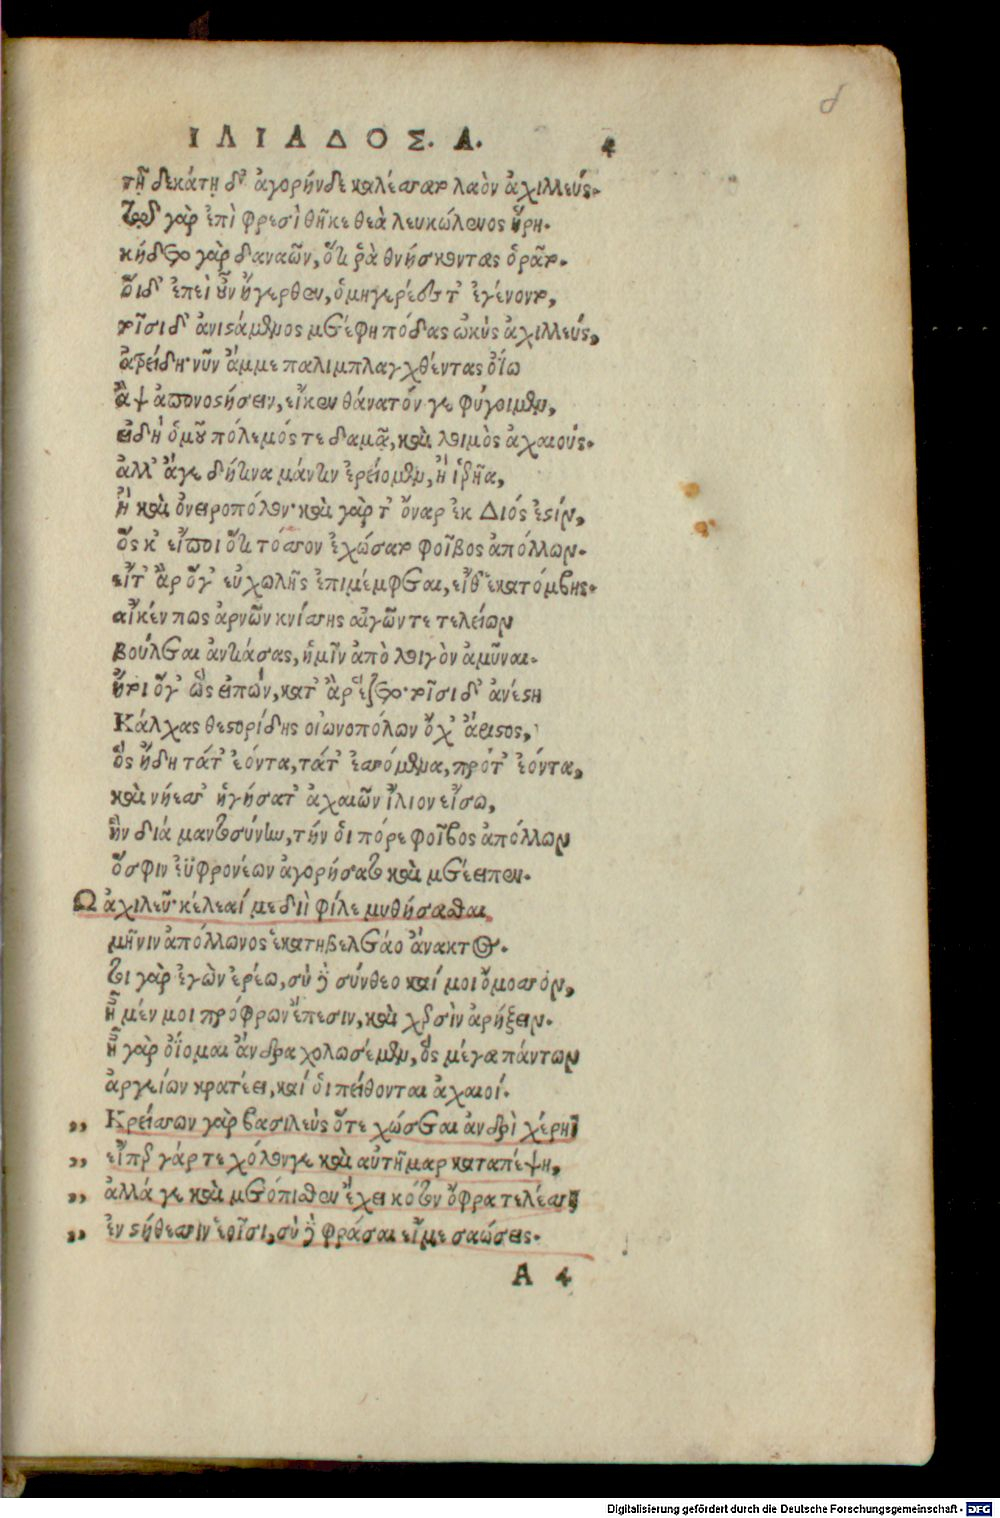 δ
ΙΛΙΑΔΟΣ. Α. 4
τῇ δεκάτῃ δ᾽ ἀγορήνδε καλέσσατο λαὸν ἀχιλλεύς.
τῷ γὰρ ἐπὶ φρεσὶ θῆκε θεὰ λευκώλενος ἥρη.
κήδετο γὰρ δαναῶν, ὅτι ῥὰ θνήσκοντας ὁρᾶτο.
οἵδ᾽ ἐπεὶ οὖν ἤγερθεν, ὁμηγερέες τ᾽ ἐγένοντο,
τοῖσι δ᾽ ἀνιστάμενος μετέφη πόδας ὠκὺς ἀχιλλεύς,
ἀτρείδη· νῦν ἄμμε παλιμπλαγχθέντας ὀΐω
ἂψ ἀπονοστήσειν, εἴκεν θάνατόν γε φύγοιμεν,
εἰδὴ ὁμοῦ πόλεμός τε δαμᾷ, καὶ λοιμὸς ἀχαιούς.
ἀλλ᾽ ἄγε δή τινα μάντιν ἐρείομεν, ἢ ἱερῆα,
ἢ καὶ ὀνειροπόλον· καὶ γὰρ τ᾽ ὄναρ ἐκ Διός ἐστιν,
ὅς κ᾽ εἴποι ὅτι τόσσον ἐχώσατο φοῖβος ἀπόλλων.
εἴτ᾽ ἂρ ὅγ᾽ εὐχωλῆς ἐπιμέμφεται, εἴθ᾽ ἑκατόμβης.
αἴκέν πως ἀρνῶν κνίσσης αἰγῶν τε τελείων
βούλεται ἀντιάσας, ἡμῖν ἀπὸ λοιγὸν ἀμῦναι.
ἤτοι ὅγ᾽ ὣς εἰπών, κατ᾽ ἂρ ἕζετο· τοῖσι δ᾽ ἀνέστη
Κάλχας θεστορίδης οἰωνοπόλων ὄχ᾽ ἄριστος,
ὃς ᾔδη τάτ᾽ ἐόντα, τάτ᾽ ἐσσόμενα, πρότ᾽ ἐόντα,
καὶ νήεσσ᾽ ἡγήσατ᾽ ἀχαιῶν ἴλιον εἴσω,
ἣν διά μαντοσύνην, τήν ὁι πόρε φοῖβος ἀπόλλων
ὅσφιν ἐϋφρονέων ἀγορήσατο καὶ μετέειπεν.
Ω ἀχιλεῦ· κέλεαί με διῒ φίλε μυθήσασθαι
μῆνιν ἀπόλλωνος ἑκατηβελετάο ἄνακτος.
τοι γὰρ ἐγὼν ἐρέω, σὺ δὲ σύνθεο καί μοι ὄμοσσον,
ἦ μέν μοι πρόφρων ἔπεσιν, καὶ χερσὶν ἀρήξειν.
ἦ γὰρ ὀΐομαι ἄνδρα χολωσέμεν, ὃς μέγα πάντων
ἀργείων κρατέει, καί ὁι πείθονται ἀχαιοί.
,, Κρείσσων γὰρ βασιλεὺς ὅτε χώσεται ἀνδρὶ χέρηϊ
,, εἴπερ γάρ τε χόλονγε καὶ αὐτῆμαρ καταπέψῃ,
,, ἀλλά γε καὶ μετόπισθεν ἔχει κότον ὄφρα τελέσσῃ
,, ἐν στήθεσσιν ἑοῖσι, σὺ δὲ φράσαι εἴ με σαώσεις.
Α 4
Digitalisierung gefördert durch die Deutsche Forschungsgemeinschaft - DFG